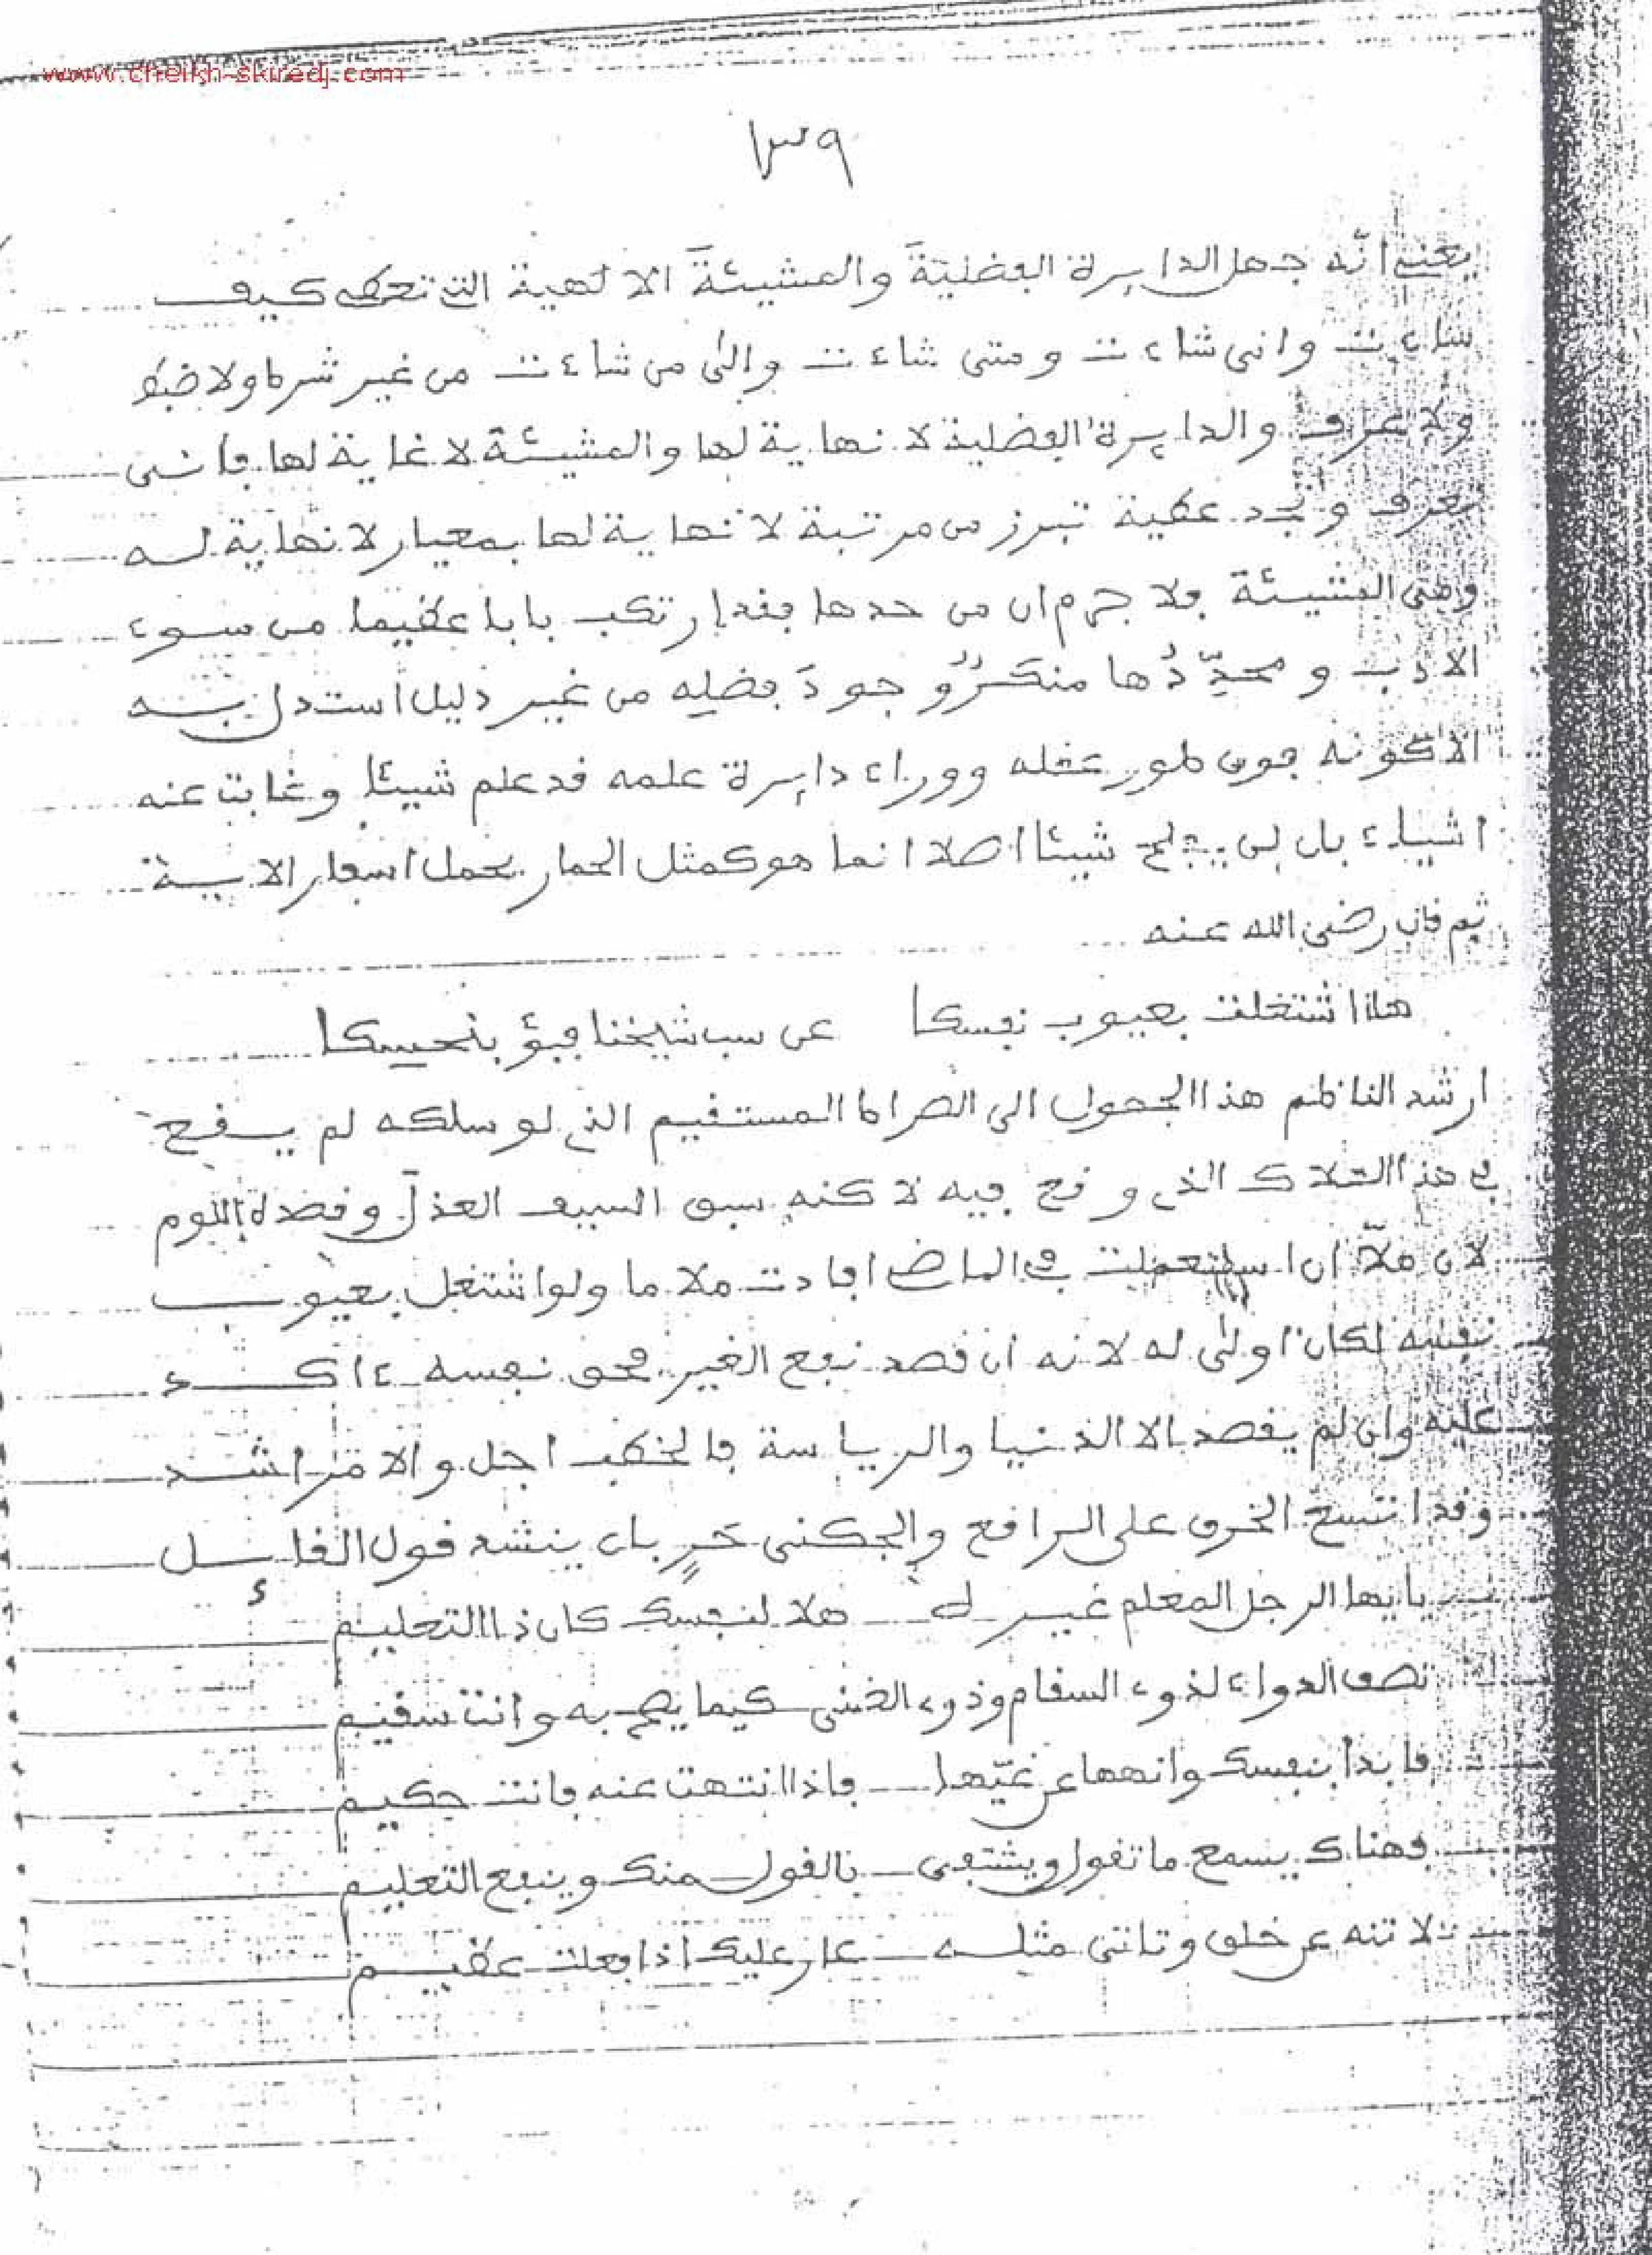 www.cheikh-skiredj.com
١٣٩
يعني انّه جهل الدايرة الفضليّةَ والمشيئةَ الالهية التي تعطى كيف
شاءت وانى شاءت ومتى شاءت والى من شاءت من غير شرط ولا ضبط
ولا عرف والدايرة الفضلية لا نهاية لها والمشيئة لا غاية لها فانى
تعرف وتحد عطية تبرز من مرتبة لا نهاية لها بمعيار لا نهاية له
وهى المشيئة فلا جرم ان من حدها فقد ارتكب بابا عظيما من سوء
الادب ومحدّدُها منكرُ وجودَ فضلِه من غير دليل استدل به
الا كونه فوق طور عقله ووراء دايرة علمه قد علم شيئا وغابت عنه
اشياء بل لم شيئا اصلا انما هو كمثل الحمار يحمل اسفارا الاية
ثم قال رضى الله عنه
هلا اشتغلت بعيوب نفسكا عن سب شيخنا فبؤ بنحسكا
ارشد الناظم هذا الجهول الى الصراط المستقيم الذى لو سلكه لم يقع
فى هذا الهلاك الذى وقع فيه لاكنه سبق السيف العذل وقصده اللوم
لان هلاّ ان استعملت فى الماضى افادت ملاما ولو اشتغل بعيوب
نفسه لكان اولى له لانه ان قصد نفع الغير فحق نفسه ءاكد
عليه وان لم يقصد الا الدنيا والرياسة فالخطب اجل والامر اشد
وقد اتسع الخرق على الراقع والجكنى حَرٍ بان ينشد قول القائل
يايها الرجل المعلم غيره هلا لنفسك كان ذا التعليم
تصف الدواء لذوى السقام وذوى الضنى كيما يصح به وانت سقيم
فابدا بنفسك وانهها عن غيّها فاذا انتهت عنه فانت حكيم
وهناك يسمع ما تقول ويشتفى بالقول منك وينفع التعليم
لا تنه عن خلق وتاتى مثله عار عليك اذا فعلت عظيم